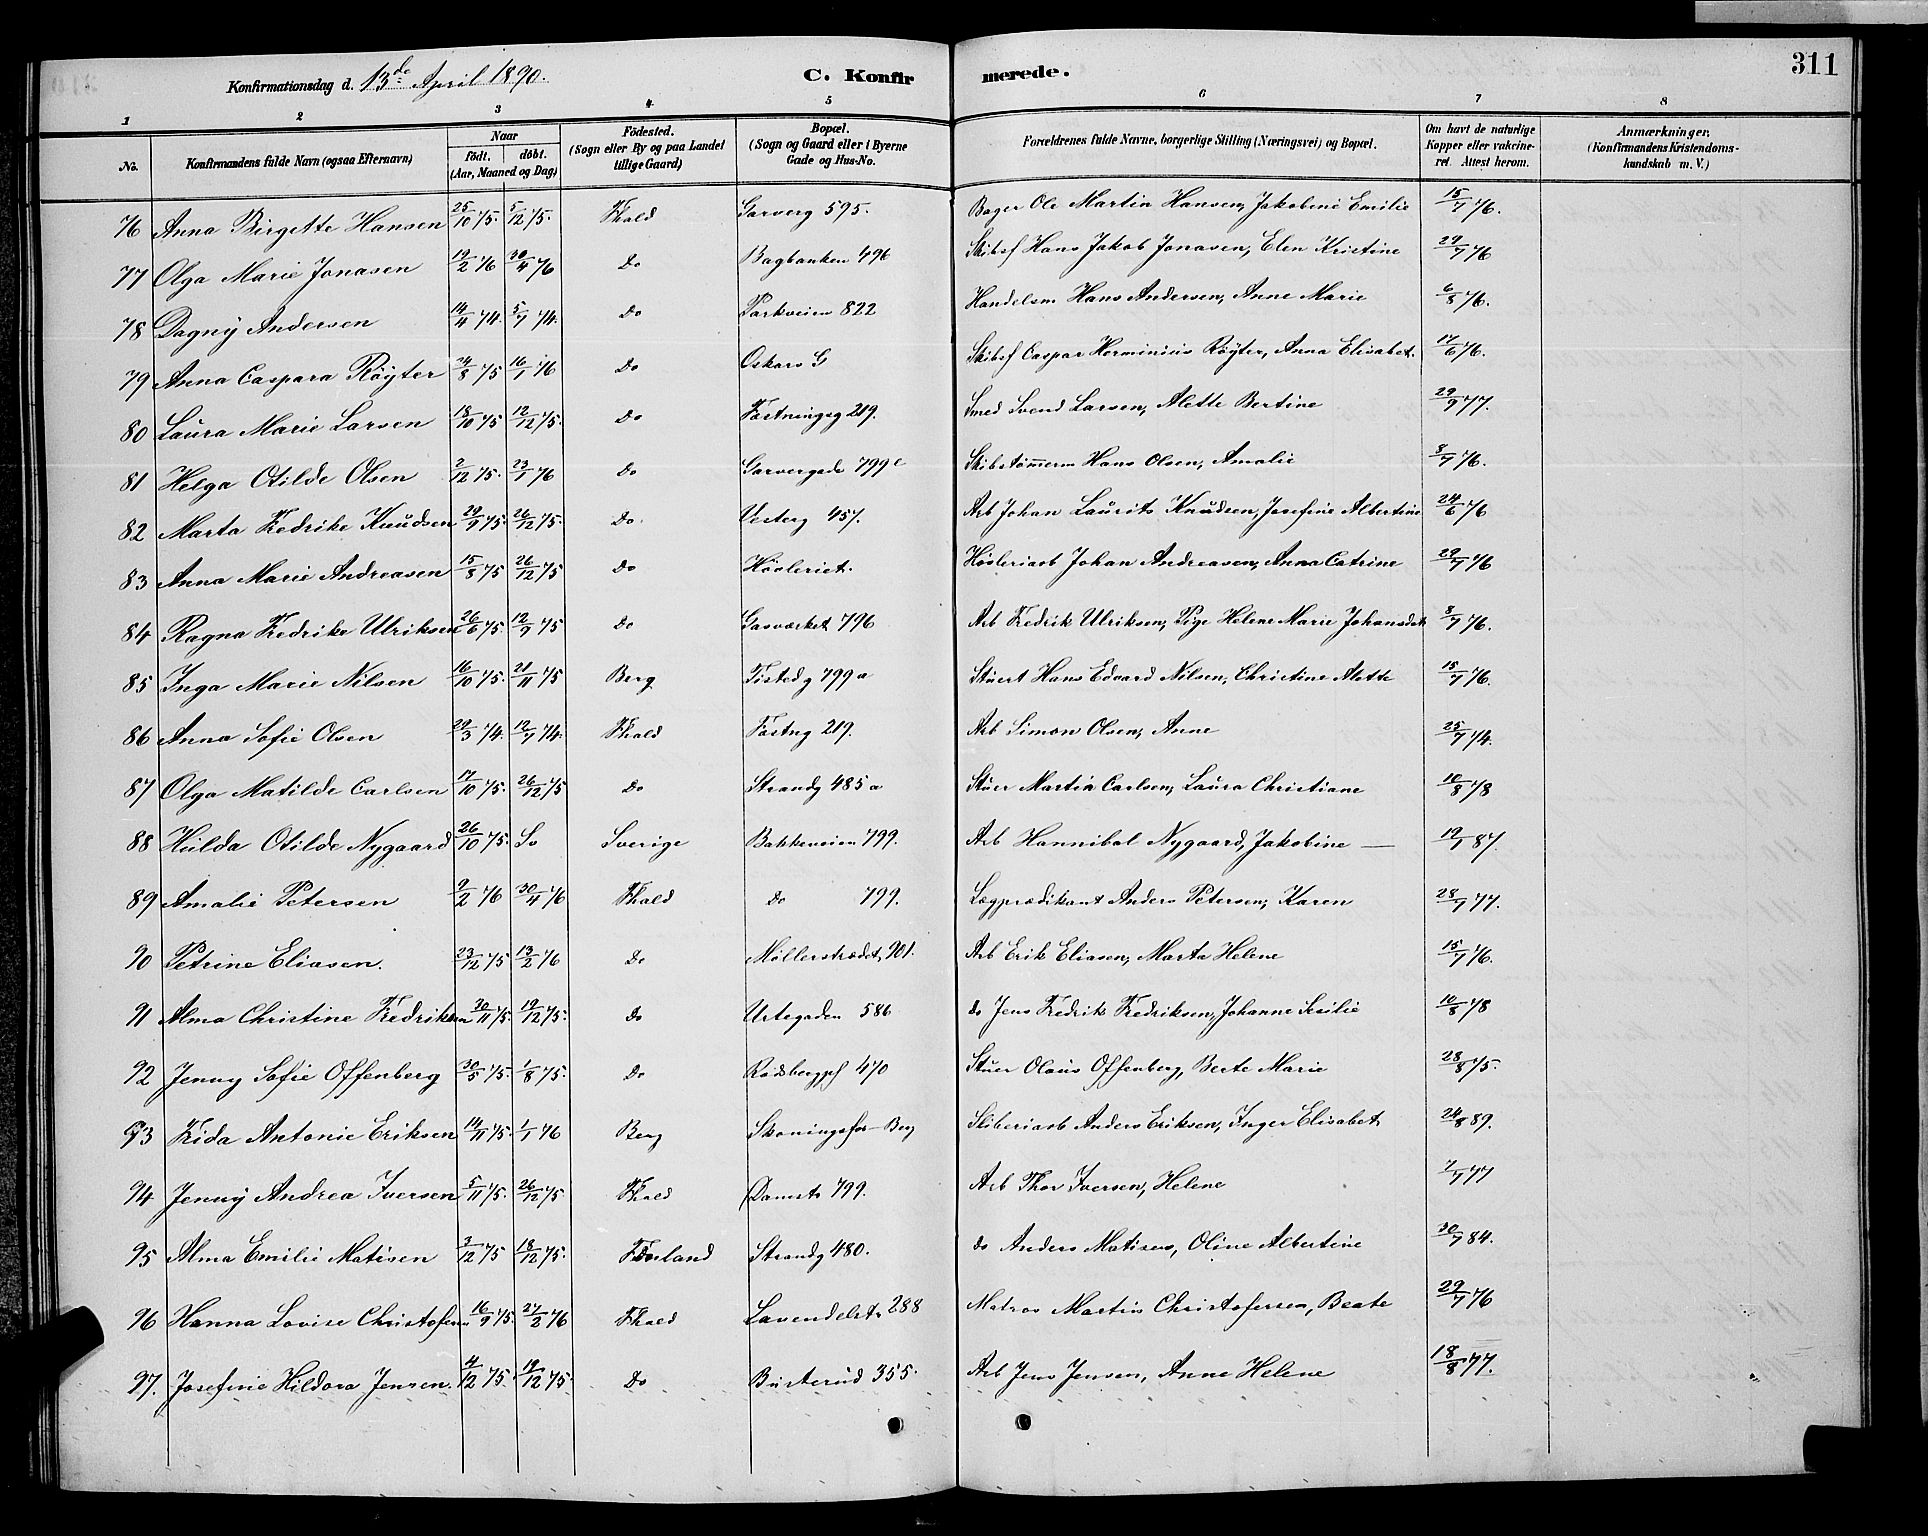 311
Konfirmationsdag d. 13de April 1890.
C. Konfirmerede.
1 2 3 4 5 6 7 8
No.
Konfirmandens fulde Navn (ogsaa Efternavn)
Naar
födt. döbt.
(Aar, Maaned og Dag)
Födested.
(Sogn eller By og paa Landet
tillige Gaard)
Bopæl.
(Sogn og Gaard eller i Byerne
Gade og Hus-No.
Forældrenes fulde Navne, borgerlige Stilling (Næringsvei) og Bopæl.
Om havt de naturlige
Kopper eller vakcine-
ret. Attest herom.
Anmærkninger.
(Konfirmandens Kristendoms-
kundskab m. V.)
76 Anna Birgette Hansen 25/10 75. 5/12 75. Fhald Garverg 595. Bager Ole Martin Hansen, Jakobine Emilie 15/7 76.
77 Olga Marie Jonasen 19/2 76 30/4 76 Do Bagbanken 496 Skibsf Hans Jakob Jonasen, Elen Kristine 29/7 76
78 Dagny Andersen 14/4 74. 5/7 74. Do Parkveien 822 Handelsm Hans Andersen, Anne Marie 6/8 76.
79 Anna Caspara Röyter 24/8 75 16/1 76 Do Oskars G Skibsf Caspar Herminius Röyter, Anna Elisabet. 17/6 76.
80 Laura Marie Larsen 18/10 75 12/12 75. Do Fæstningsg 219. Smed Svend Larsen, Alette Bertine 29/9 77.
81 Helga Otilde Olsen 2/12 75. 23/1 76 Do Garvergade 799 c Skibstömmerm Hans Olsen, Amalie 8/7 76.
82 Marta Fredrike Knudsen 29/9 75. 26/12 75. Do. Vesterg 457. Arb Johan Laurits Knudsen, Josefine Albertine 24/6 76
83 Anna Marie Andreasen 15/8 75 26/12 75 Do Hövleriet. Hövleriarb Johan Andreasen, Anna Catrine 29/7 76
84 Ragna Fredrike Ulriksen 26/6 75. 12/9 75 Do Gasværket 796 Arb Fredrik Ulriksen, Pige Helene Marie Johansdt 8/7 76.
85 Inga Marie Nilsen 16/10 75. 21/11 75 Berg Tistedg 799 a Stuert Hans Edvard Nilsen, Christine Mette 15/7 76.
86 Anna Sofie Olsen 29/3 74. 12/7 74. Fhald Fæstng 219. Arb Simon Olsen, Anne 25/7 74.
87 Olga Matilde Carlsen 17/10 75. 26/12 75 Do Strandg 485 a Stuer Martin Carlsen, Laura Christiane 10/8 78
88 Hulda Otilde Nygaard 26/10 75. Do Sverige Bakkeveien 799. Arb Hannibal Nygaard, Jakobine — 19/7 87.
89 Amalie Petersen 9/2 76 30/4 76 Fhald Do 799. Lægprædikant Anders Petersen, Karen 28/7 77.
90 Petrine Eliasen. 23/12 75 13/2 76 Do Möllerstrædet 901. Arb Erik Eliasen, Marta Helene 15/7 76.
91 Alma Christine Fredriksen 30/11 75. 19/12 75. Do Urtegaden 586 do Jens Fredrik Fredriksen, Johanne Sesilie 10/8 78
92 Jenny Sofie Offenberg 30/5 75. 1/8 75. Do Rödsbergpl 470 Stuer Olaus Offenberg, Berte Marie 28/8 75.
93 Frida Antonie Eriksen 14/11 75. 1/1 76 Berg Skoningsfos Berg Sliberiarb Anders Eriksen, Inger Elisabet 24/8 89.
94 Jenny Andrea Iversen 5/11 75. 26/12 75 Fhald Damstr 799. Arb Thor Iversen, Helene 7/7 77
95 Alma Emilie Matisen 3/12 75 18/12 75. Strandg 480. do Anders Matisen, Oline Albertine 30/7 84.
96 Hanna Lovise Christofersen 16/9 75. 27/2 76 Fhald Lavendelstr 288 Matros Martin Christofersen, Beate 29/7 76
97. Josefine Hildora Jensen. 4/12 75. 19/12 75. Do Busterud 355. Arb Jens Jensen, Anne Helene 18/8 77.